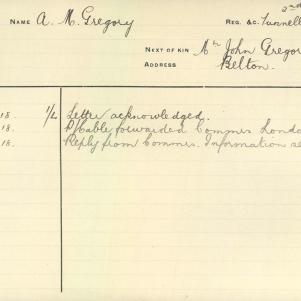 2nd
NAME A. M. Gregory REG. &C. Tunnell
NEXT OF KIN Mr John Gregor
ADDRESS Belton.
18. 1/L Letter acknowledged.
18. P/Cable forwarded Commis Londo
18. Reply from Commis. Information se